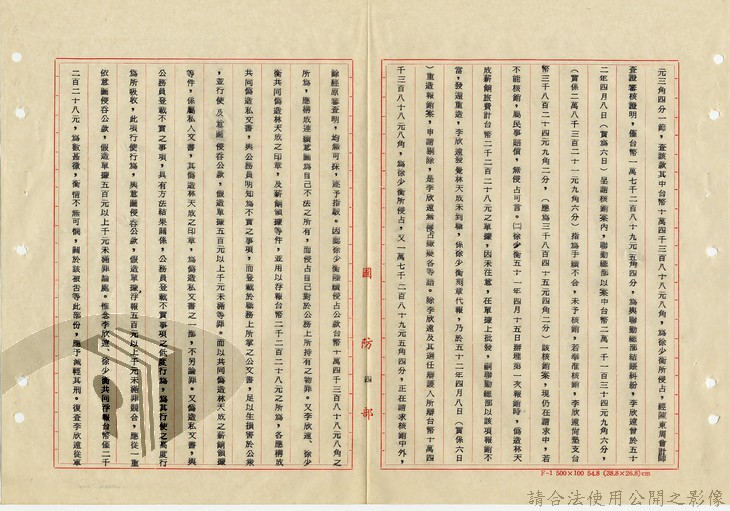 元三角四分一節，查該款其中台幣十萬四千三百八十八元八角，為徐少衡所侵占，業經陳東周會計師
查證審核證明，僅台幣一萬七千二百八十九元五角四分，為與聯勤總部結賬糾紛，李欣遠曾於五十
二年四月八日（實為六日）呈請核銷案內，聯勤總部以案中台幣二萬一千一百三十四元九角六分，
（實係二萬八千三百二十一元九角六分）指為手續不合，未予核銷，若舉准核銷，李欣遠尚墊支台
幣三千八百二十四元九角二分，（應為三千八百四十五元四角二分）該核銷案，現仍在請求中，若
不能核銷，屬民事賠償，無侵占可言。㈡徐少衡五十一年四月十五日辦理第一次報銷時，偽造林天
成薪餉旅費計台幣二千二百二十八元之單據，因未注意，在單據上批發，嗣聯勤總部以該項報銷不
當，發還重造，李欣遠發覺林天成未到職，係徐少衡刻章代報，乃於五十二年四月八日（實係六日
）重造報銷案，申請剔除，是李欣遠無侵占嫌疑各等語。除李欣遠及其選任辯護人所辯台幣十萬四
千三百八十八元八角，為徐少衡所侵占，又一萬七千二百八十九元五角四分，正在請求核銷中外，
國防部
四
餘經原審查明，均無可採，應予指駁。因徐少衡陸續侵占公款台幣十萬四千三百八十八元八角之
所為，應構成連續意圖為自己不法之所有，而侵占自己對於公務上所持有之物罪。又李欣遠、徐少
衡共同偽造林天成之印章，及薪餉領據等件，並用以存報台幣二千二百二十八元之所為，各應構成
共同偽造私文書，與公務員明知為不實之事項，而登載於職務上所掌之公文書，足以生損害於公眾
，並行使及意圖侵吞公款，偽造單據五百元以上千元未滿等罪。而以共同偽造林天成之薪餉領據
等件，係屬私人文書，其偽造林天成之印章，為偽造私文書之一部，不另論罪。又偽造私文書，與
公務員登載不實之事項，具有方法結果關係，公務員登載不實事項之低度行為，為其行使之高度行
為所吸收，此項行使行為，與意圖侵吞公款，偽造單據存報五百元以上千元未滿罪競合，應從一重
依意圖侵吞公款，偽造單據五百元以上千元未滿罪論處。惟念李欣遠、徐少衡共同存報台幣僅二千
二百二十八元，為數甚微，衡情不無可憫，關於該被告等此部份，應予減輕其刑。復查李欣遠從軍
F-1 500×100 54.8 (38.8×26.8)cm
請合法使用公開之影像